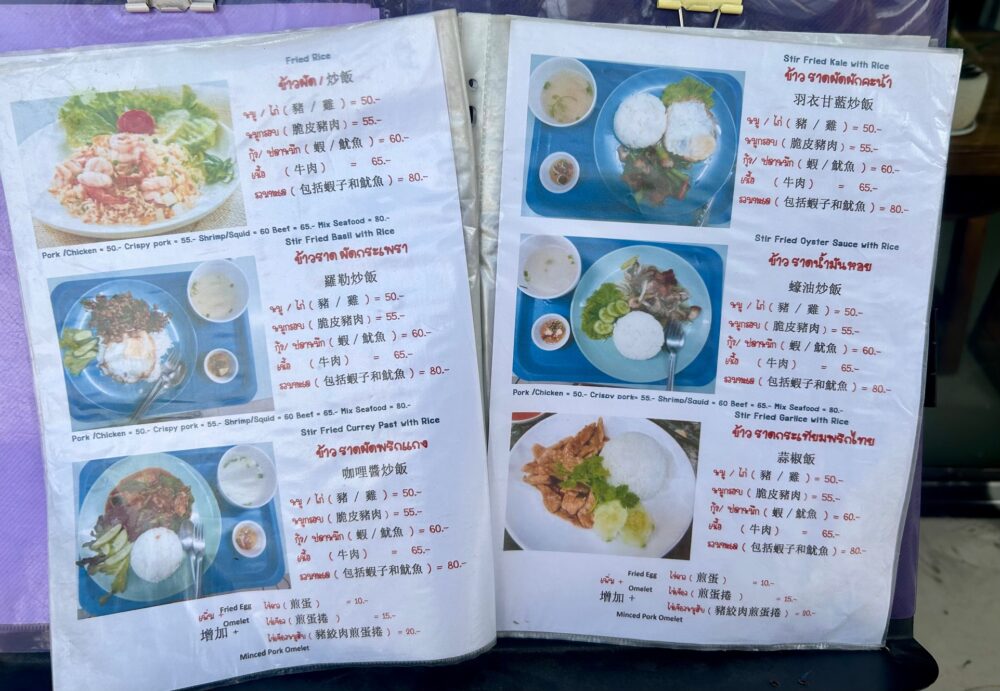 Fried Rice
ข้าวผัด / 炒飯
หมู / ไก่ ( 豬 / 雞 ) = 50.-
หมูกรอบ ( 脆皮豬肉 ) = 55.-
กุ้ง/ ปลาหมึก ( 蝦 / 魷魚 ) = 60.-
เนื้อ ( 牛肉 ) = 65.-
รวมทะเล ( 包括蝦子和魷魚 ) = 80.-
Pork /Chicken = 50.- Crispy pork = 55.- Shrimp/Squid = 60 Beef = 65.- Mix Seafood = 80.-
Stir Fried Basil with Rice
ข้าวราด ผัดกระเพรา
羅勒炒飯
หมู / ไก่ ( 豬 / 雞 ) = 50.-
หมูกรอบ ( 脆皮豬肉 ) = 55.-
กุ้ง/ ปลาหมึก ( 蝦 / 魷魚 ) = 60.-
เนื้อ ( 牛肉 ) = 65.-
รวมทะเล ( 包括蝦子和魷魚 ) = 80.-
Pork /Chicken = 50.- Crispy pork = 55.- Shrimp/Squid = 60 Beef = 65.- Mix Seafood = 80.-
Stir Fried Currey Past with Rice
ข้าว ราดผัดพริกแกง
咖哩醬炒飯
หมู / ไก่ ( 豬 / 雞 ) = 50.-
หมูกรอบ ( 脆皮豬肉 ) = 55.-
กุ้ง/ ปลาหมึก ( 蝦 / 魷魚 ) = 60.-
เนื้อ ( 牛肉 ) = 65.-
รวมทะเล ( 包括蝦子和魷魚 ) = 80.-
เพิ่ม + Fried Egg ไข่ดาว ( 煎蛋 ) = 10.-
增加 + Omelet ไข่เจียว ( 煎蛋捲 ) = 15.-
ไข่เจียวหมูสับ ( 豬絞肉煎蛋捲 ) = 20.-
Minced Pork Omelet
Stir Fried Kale with Rice
ข้าว ราดผัดผักคะน้า
羽衣甘藍炒飯
หมู / ไก่ ( 豬 / 雞 ) = 50.-
หมูกรอบ ( 脆皮豬肉 ) = 55.-
กุ้ง/ ปลาหมึก ( 蝦 / 魷魚 ) = 60.-
เนื้อ ( 牛肉 ) = 65.-
รวมทะเล ( 包括蝦子和魷魚 ) = 80.-
Stir Fried Oyster Sauce with Rice
ข้าว ราดน้ำมันหอย
蠔油炒飯
หมู / ไก่ ( 豬 / 雞 ) = 50.-
หมูกรอบ ( 脆皮豬肉 ) = 55.-
กุ้ง/ ปลาหมึก ( 蝦 / 魷魚 ) = 60.-
เนื้อ ( 牛肉 ) = 65.-
รวมทะเล ( 包括蝦子和魷魚 ) = 80.-
Pork /Chicken = 50.- Crispy pork = 55.- Shrimp/Squid = 60 Beef = 65.- Mix Seafood = 80.-
Stir Fried Garlice with Rice
ข้าว ราดกระเทียมพริกไทย
蒜椒飯
หมู / ไก่ ( 豬 / 雞 ) = 50.-
หมูกรอบ ( 脆皮豬肉 ) = 55.-
กุ้ง/ ปลาหมึก ( 蝦 / 魷魚 ) = 60.-
เนื้อ ( 牛肉 ) = 65.-
รวมทะเล ( 包括蝦子和魷魚 ) = 80.-
เพิ่ม + Fried Egg ไข่ดาว ( 煎蛋 ) = 10.-
增加 + Omelet ไข่เจียว ( 煎蛋捲 ) = 15.-
ไข่เจียวหมูสับ ( 豬絞肉煎蛋捲 ) = 20.-
Minced Pork Omelet